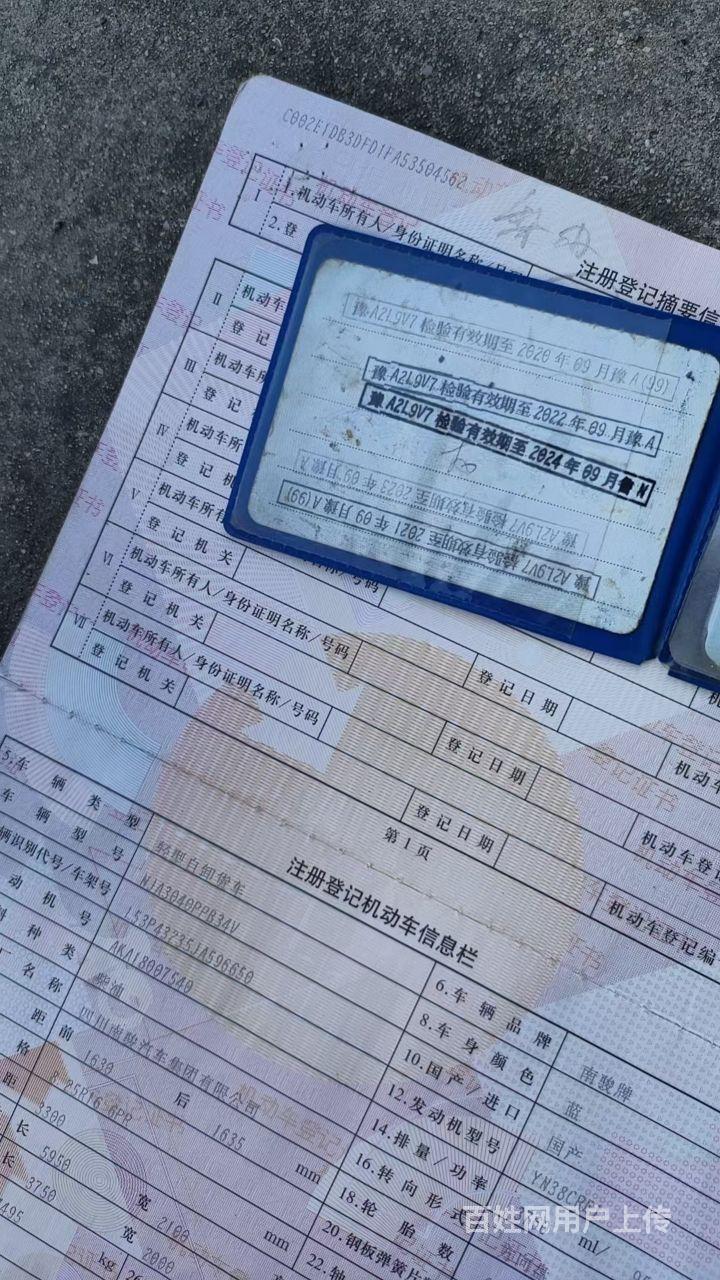 C002E1DB3DFD1FA53504562
I 1.机动车所有人/身份证明名称/号码
2.登
注册登记摘要信
II 机动车
登记
III 机动车所
登记
IV 机动车所
登记
V 机动车所
登记机关
VI 机动车所有人/身份证明名称/号码
登记机关
登记日期
机动车
VII 机动车所有人/身份证明名称/号码
登记机关
登记日期
机动车登记
登记日期
机动车登记编
豫A2L9V7 检验有效期至2020年09月豫A(99)
豫A2L9V7 检验有效期至2022年09月豫A
豫A2L9V7 检验有效期至2024年09月鲁N
豫A2L9V7 检验有效期至2023年09月豫A
豫A2L9V7 检验有效期至2021年09月豫A(99)
第1页
注册登记机动车信息栏
5.车辆类型 轻型自卸货车
6.车辆品牌 南骏牌
车辆型号 NJA3040PPB34V
8.车身颜色 蓝
辆识别代号/车架号 L53P43235JA596650
10.国产/进口 国产
动机号 AKA18007540
12.发动机型号
种类 柴油
14.排量/功率 ml/
名称 四川南骏汽车集团有限公司
16.转向形式
距 前 1630 后 1635 mm
18.轮胎数
格
20.钢板弹簧片数
距 3300
22.轴
长 5950 宽 2100 mm
长 3750 宽 2000
4495 kg
百姓网用户上传